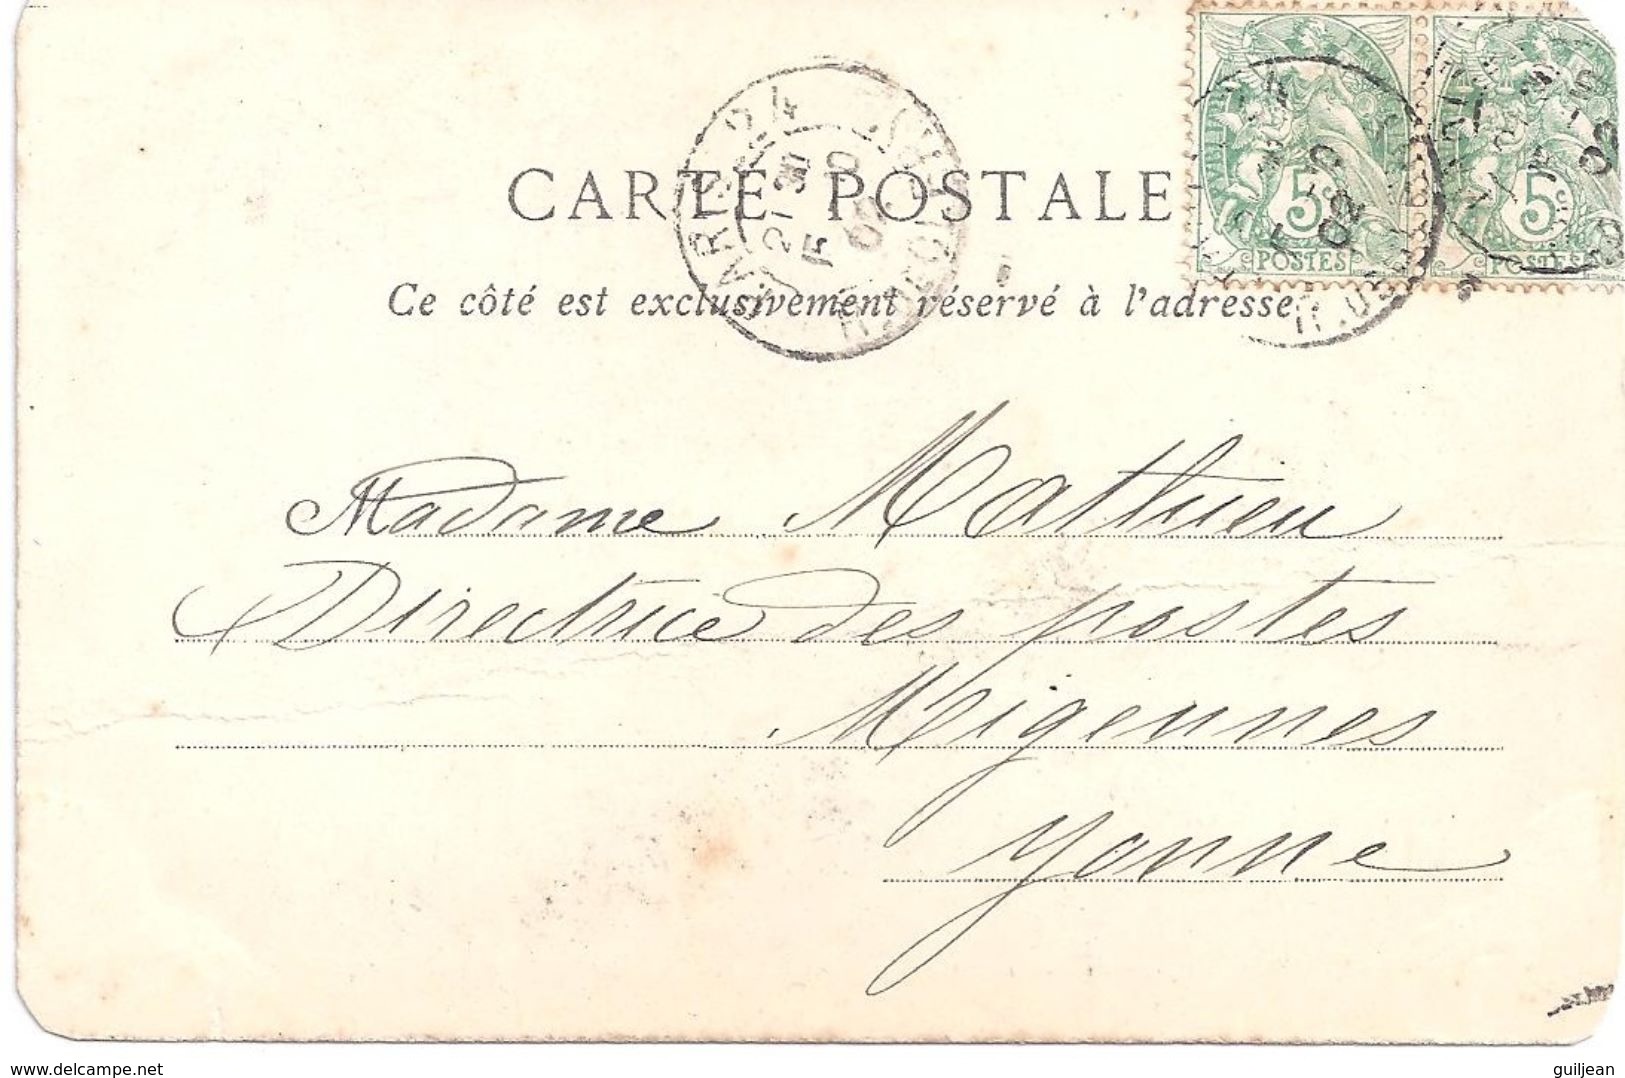 CARTE POSTALE
Ce côté est exclusivement réservé à l'adresse.
5
POSTES
5
POSTES
02
Madame Mathieu
Directrice des postes
Migennes
Yonne
www.delcampe.net
guiljean